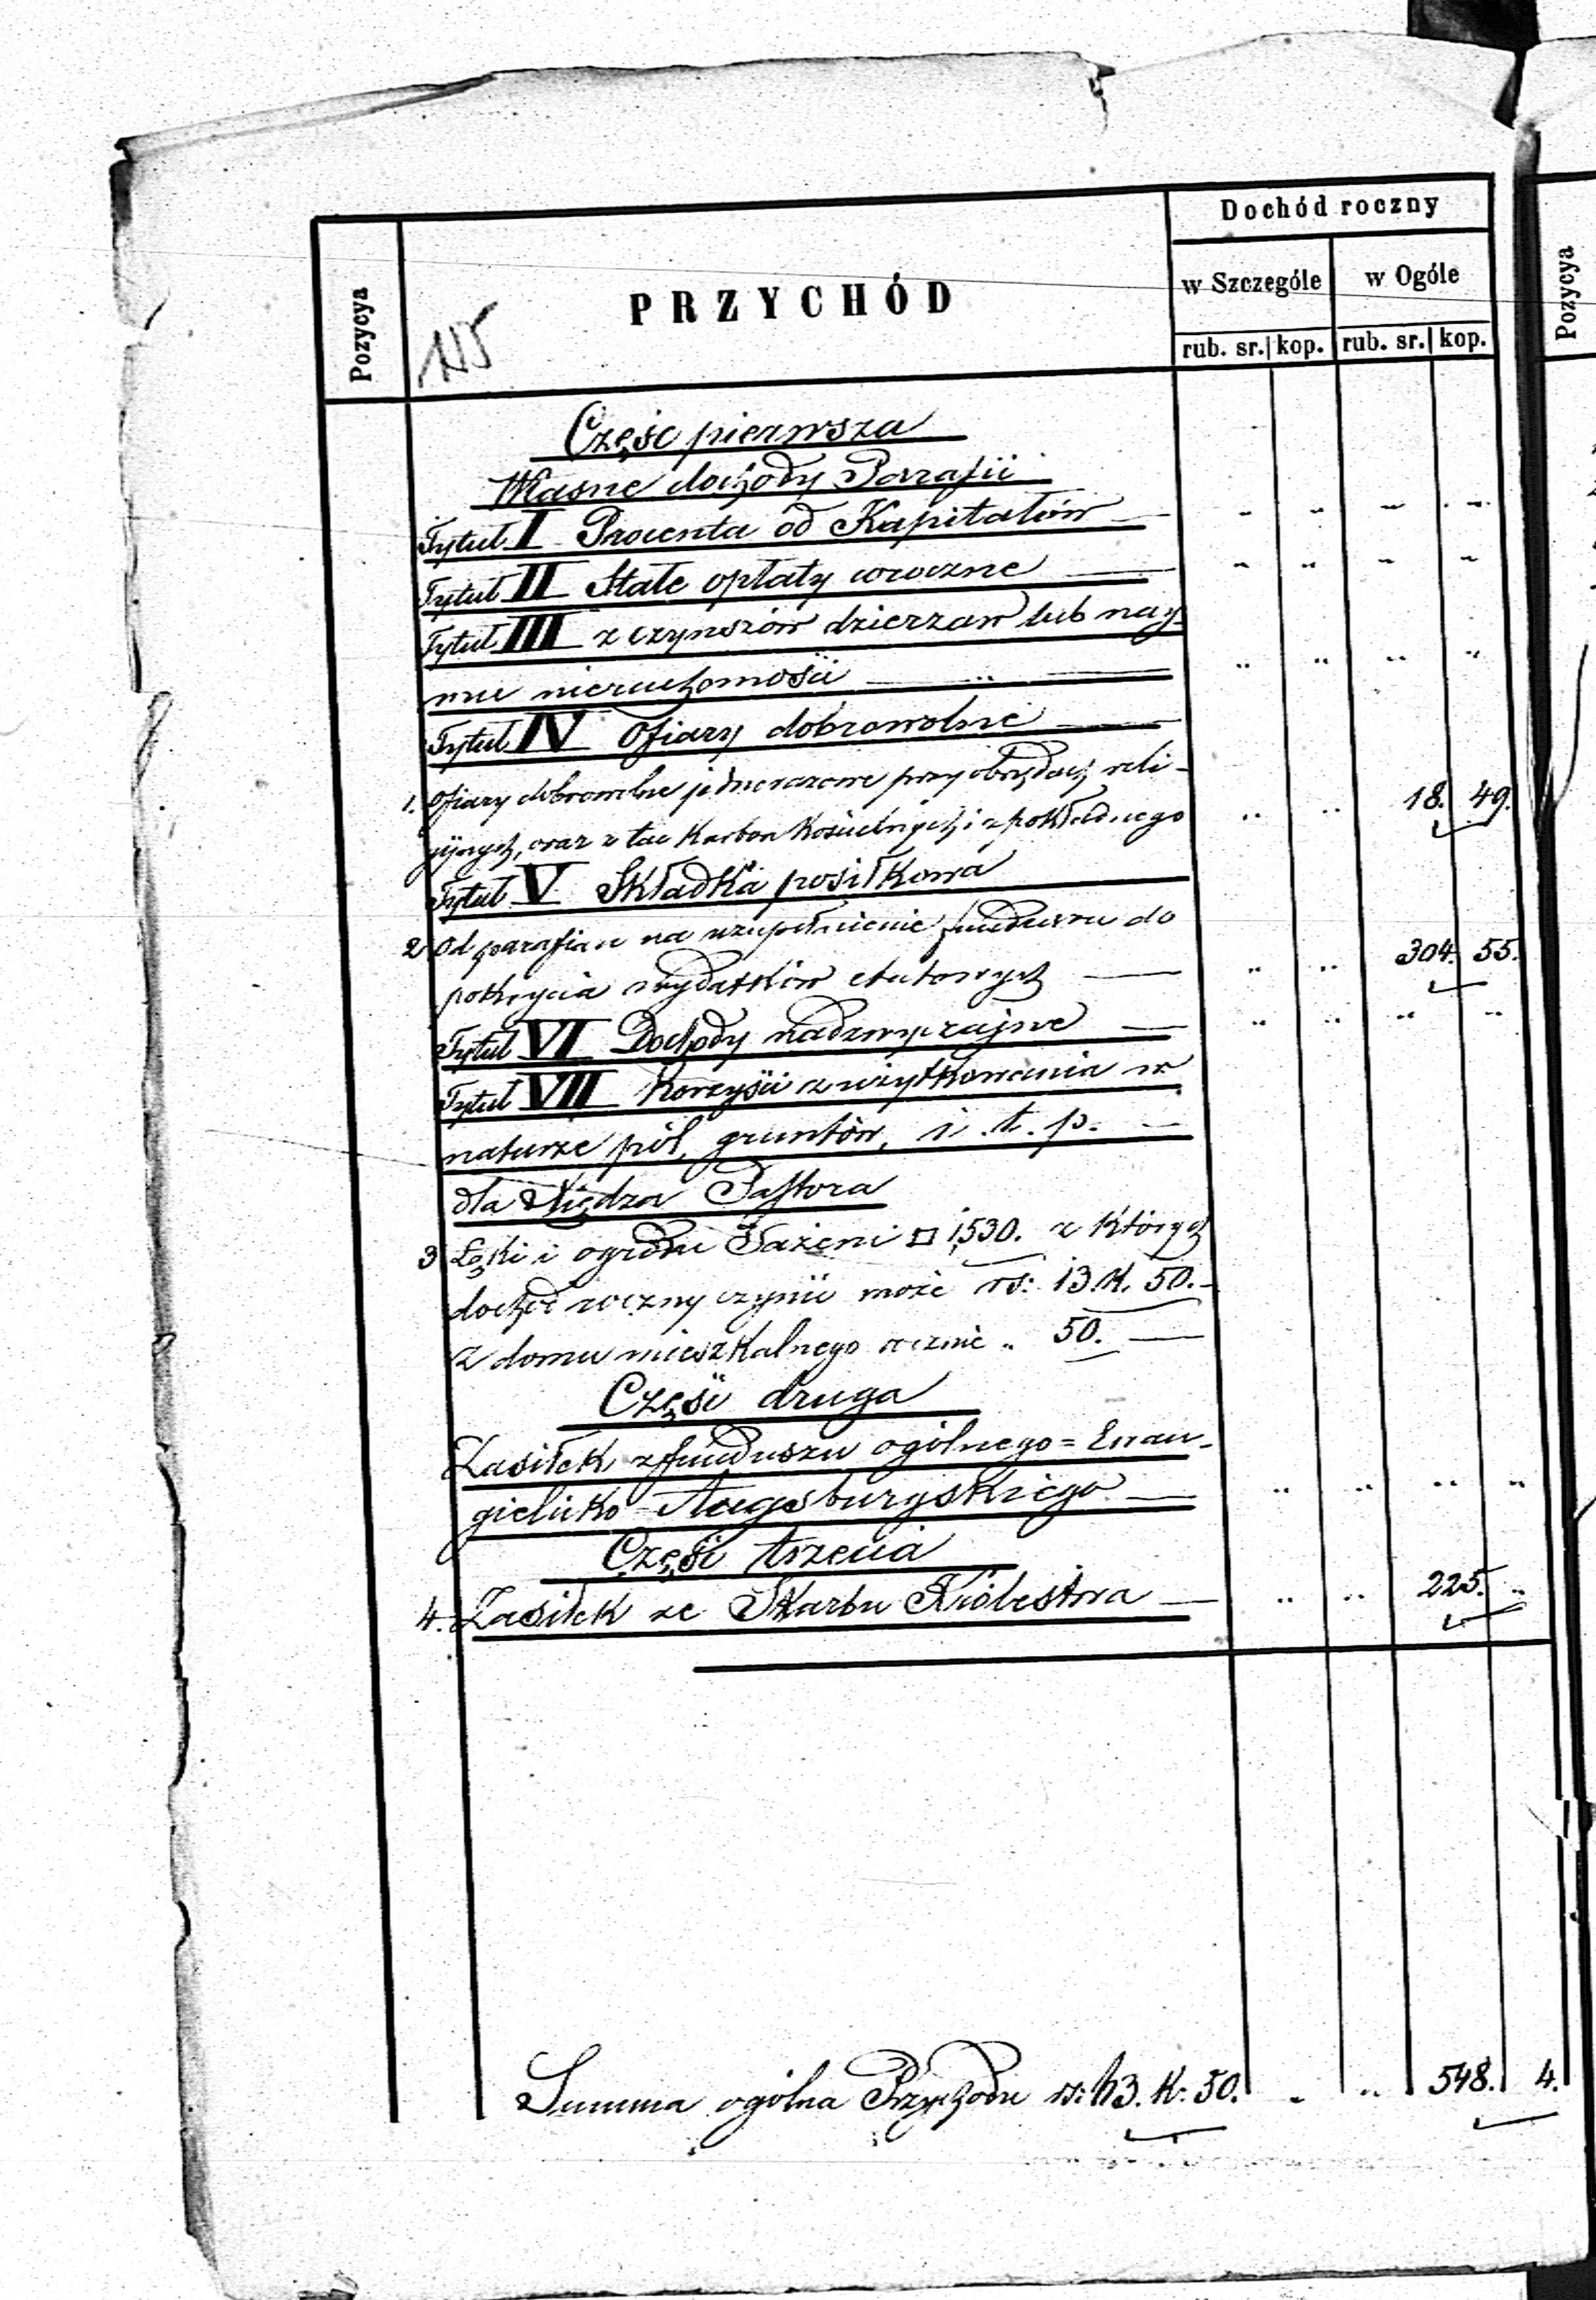 Dochód roczny
Pozycya
PRZYCHÓD
w Szczególe
w Ogóle
Pozycya
rub. sr. kop. rub. sr. kop.
115
Część pierwsza
Własne dochody Parafii
Tytuł I Procenta od Kapitałów
Tytuł II Stałe opłaty roczne
Tytuł III z czynszów dzierzaw lub naj-
mu nieruchomości
Tytuł IV Ofiary dobrowolne
1. Ofiary dobrowolne jednorazowe przy obrzędach reli-
gijnych, oraz z tac Karbon Kościelnych i z pokładnego 18. 49.
Tytuł V Składka posiłkowa
2 Od parafian na uzupełnienie funduszu do
pokrycia wydatków etatowych 304. 55.
Tytuł VI Dochody nadzwyczajne
Tytuł VII Korzyści z użytkowania w
naturze pól, gruntów, i. t. p.
dla Księdza Pastora
3 Łąki i ogrodu Sążeni □ 1,530. z których
dochód roczny czynić może rs: 13. K. 50.
Z domu mieszkalnego rocznie „ 50.
Część druga
Zasiłek z funduszu ogólnego = Ewan-
gielicko - Augsburgskiego
Części trzecia
4. Zasiłek ze Skarbu Królestwa 225. „
Summa ogólna Przychodu rs: 63. K. 50. 548. 4.